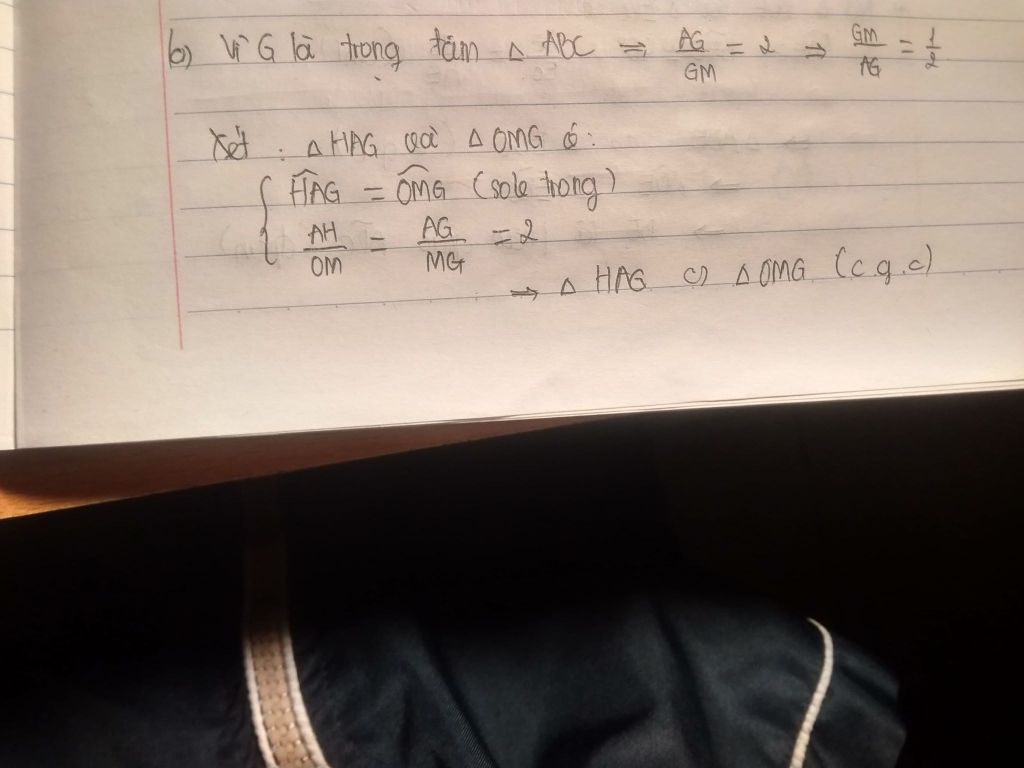 b) Vì G là trọng tâm △ ABC ⇒ AG/GM = 2 ⇒ GM/AG = 1/2
Xét : △ HAG và △ OMG có:
{ HAG^ = OMG^ (sole trong)
AH/OM = AG/MG = 2
⇒ △ HAG ∽ △ OMG (c.g.c)